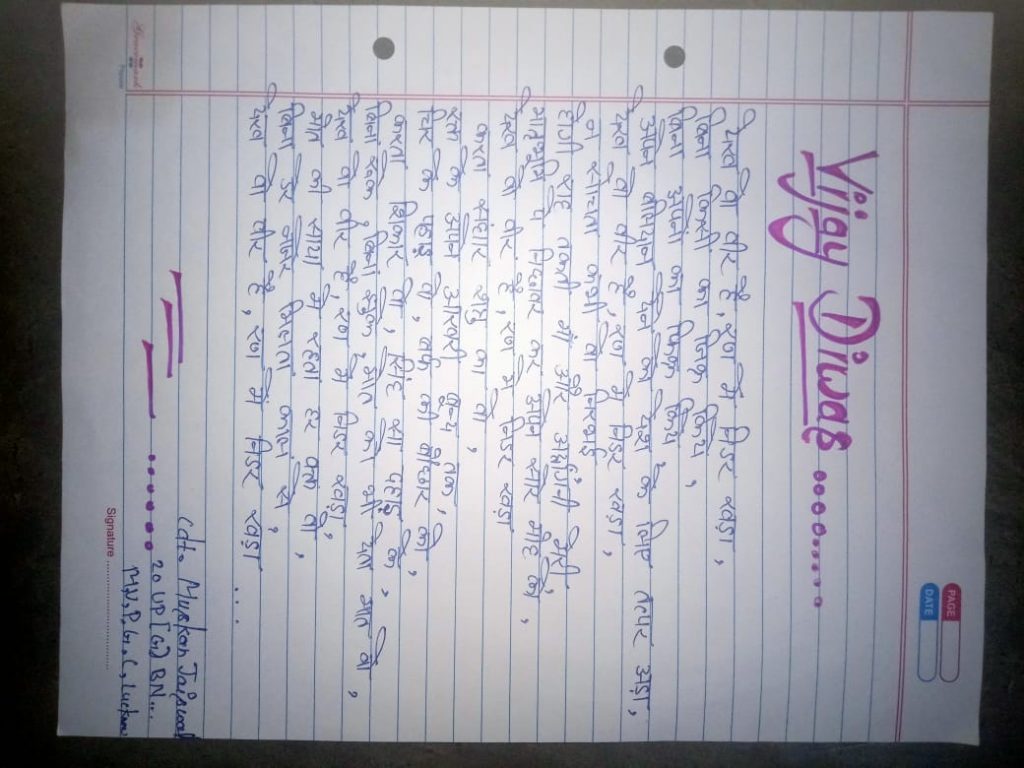 PAGE
DATE
Vijay Diwas
देखो वो वीर है, रण में निडर खड़ा,
बिना किसी का फिक्र किए,
बिना अपनों का फिक्र किए,
अपने देश के लिए तत्पर अड़ा,
देखो वो वीर है, रण में निडर खड़ा,
न सोचता कभी वो स्वार्थ,
होगी राह तकती माँ और अर्धांगिनी मेरी,
मातृभूमि पे निछावर कर अपने सारे मोह को,
देखो वो वीर है, रण में निडर खड़ा
करता संहार शत्रु का वो,
रक्त के अपने आखरी बूंद तक,
गिर के पहाड़ वो, बर्फ की बौछार को,
करता शिकार वो, सिंह सा दहाड़ के,
बिना रुके, बिना झुके मौत को भी देता मात वो,
देखो वो वीर है, रण में निडर खड़ा,
मौत की साया में रहता हर वक्त वो,
बिना डरे मगर मिलता काल से,
देखो वो वीर है, रण में निडर खड़ा ...
Cdt. Muskan Jaiswal
20 UP (G) BN...
M.N.P.G.C, Lucknow
Signature